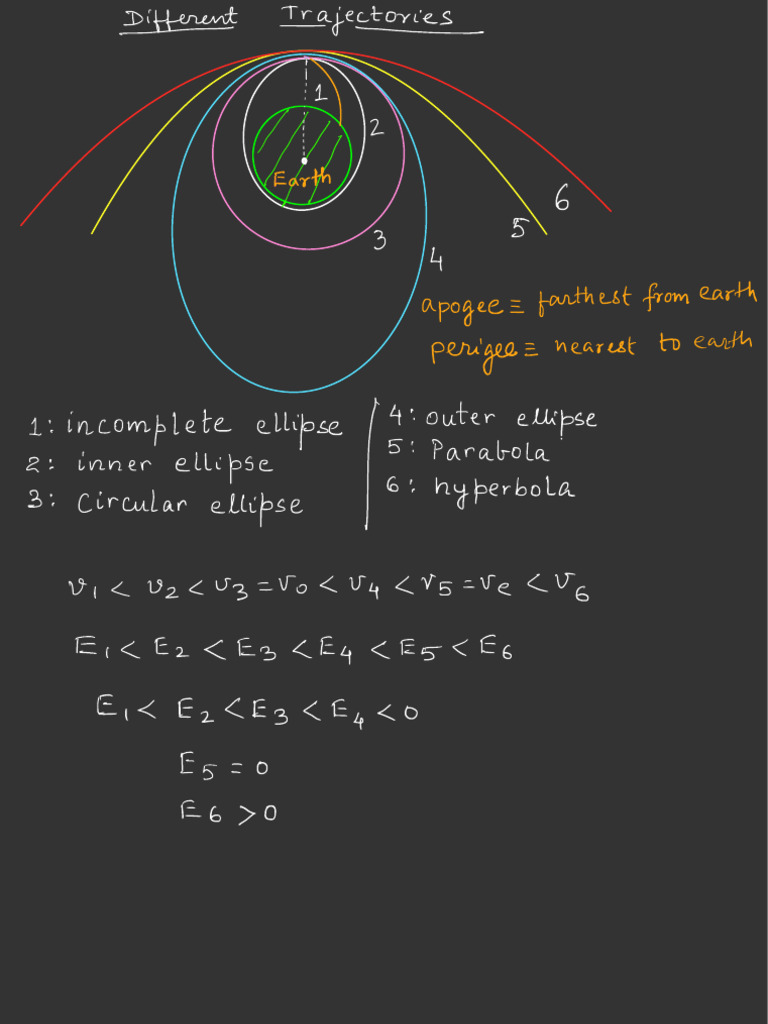 Different Trajectories
1
2
Earth
6
5
3
4
apogee ≡ farthest from earth
perigee ≡ nearest to earth
1: incomplete ellipse
2: inner ellipse
3: Circular ellipse
4: outer ellipse
5: Parabola
6: hyperbola
v₁ < v₂ < v₃ = v₀ < v₄ < v₅ = ve < v₆
E₁ < E₂ < E₃ < E₄ < E₅ < E₆
E₁ < E₂ < E₃ < E₄ < 0
E₅ = 0
E₆ > 0